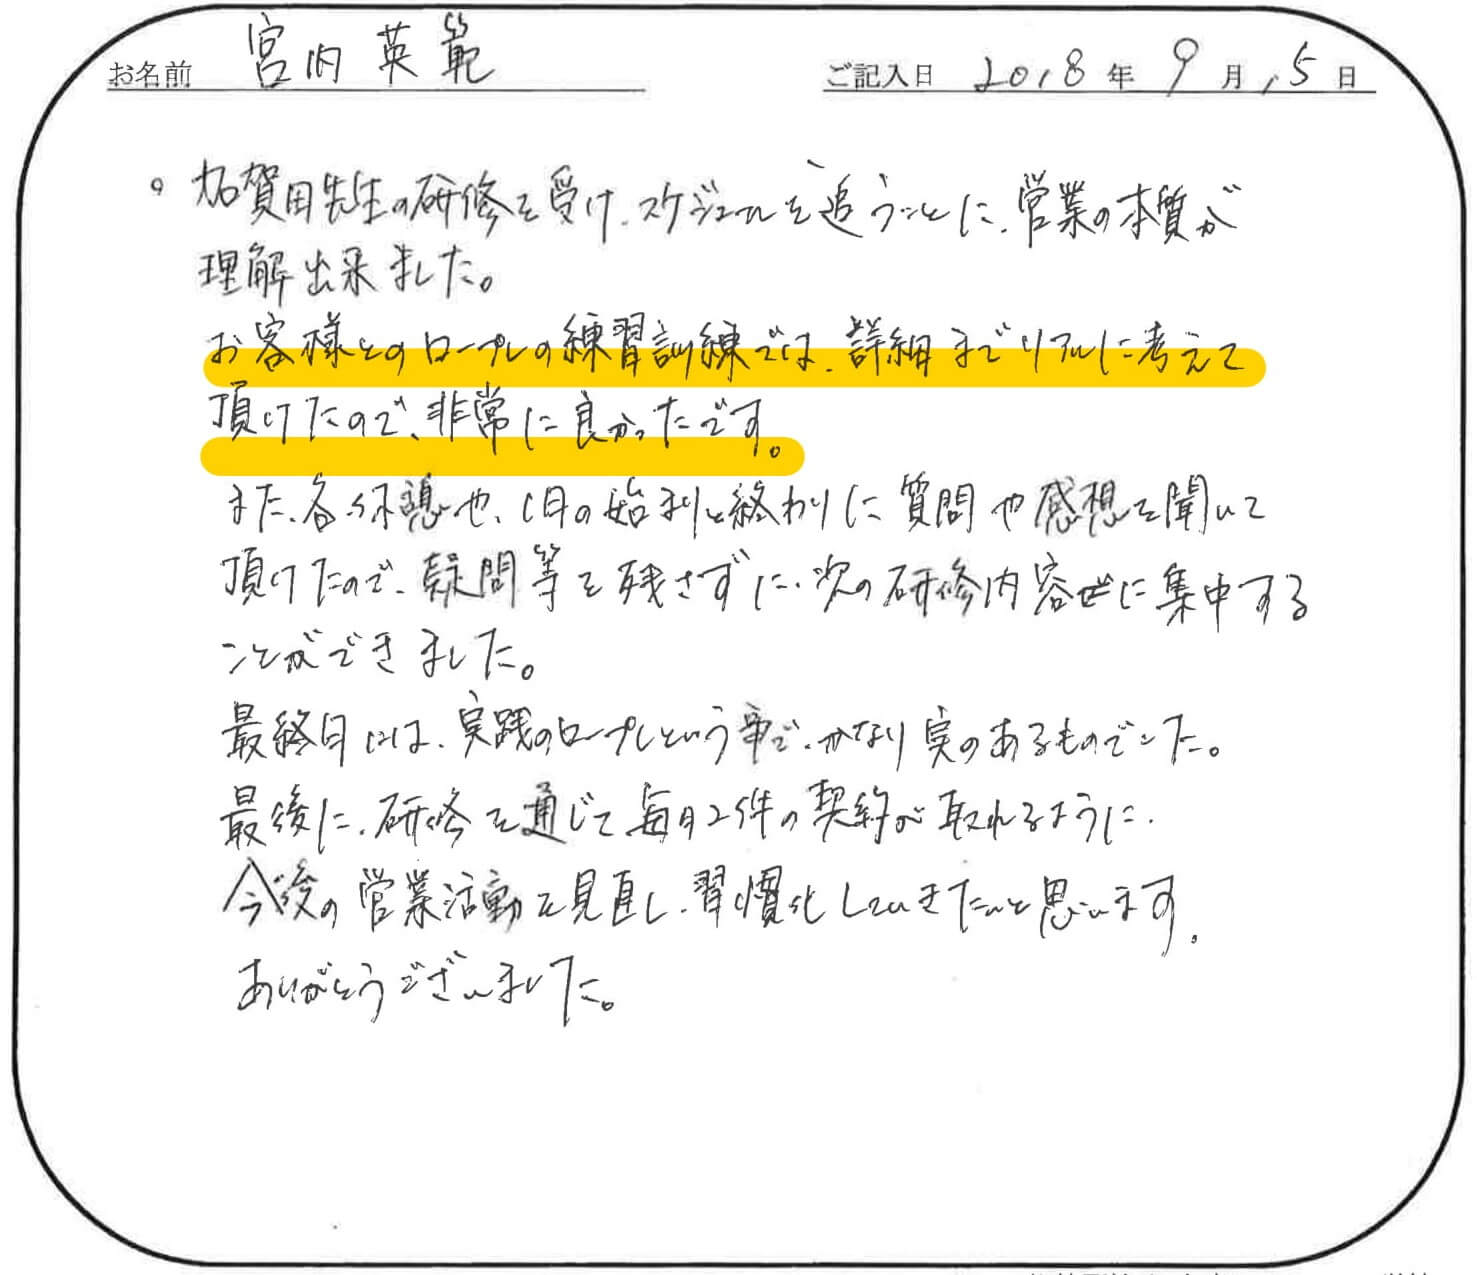 お名前 宮内 英範 ご記入日 2018年 9月 15日
。加賀田先生の研修を受け、スケジュールを追うごとに、営業の本質が
理解出来ました。
お客様とのロープレの練習訓練では、詳細までリアルに考えて
頂けたので、非常に良かったです。
また、各休憩や、1日の始まりと終わりに質問や感想を聞いて
頂けたので、疑問等を残さずに、次の研修内容に集中する
ことができました。
最終日には、実践のロープレという事で、かなり実のあるものでした。
最後に、研修を通じて毎月2件の契約が取れるように、
今後の営業活動を見直し、習慣化していきたいと思います。
ありがとうございました。